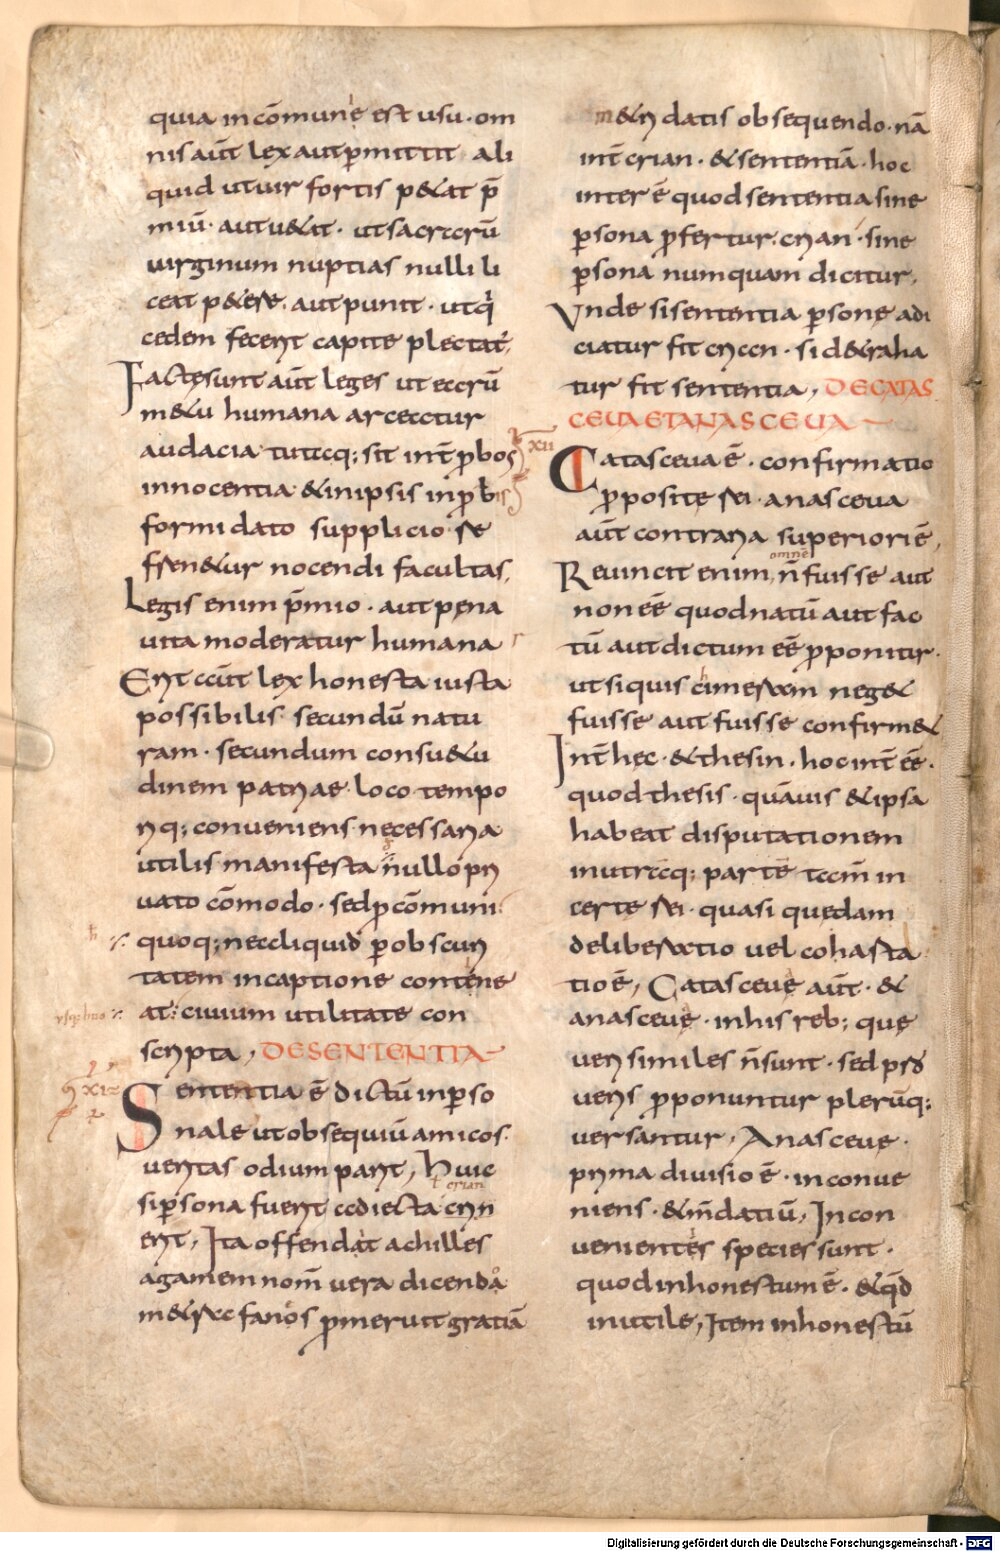 quia in cōmune est usu· om
nis aūt lex aut p̄mittit ali
quid ut uir fortis p&at p̄
miū· aut u&at· ut sacrarū
uirginum nuptias nulli li
ceat p&ere· aut punit· ut q̇
cedem fecerit capite plectat̄·
Factę sunt aūt leges ut earū
m&u humana arceatur
audacia tutaq; sit int̄ p̄bos
innocentia & in ipsis inp̄bis
formidato supplicio re
fren&ur nocendi facultas,
Legis enim p̄mio· aut pęna
uita moderatur humana
Erit aūt lex honesta iusta
possibilis secundū natu
ram· secundum consu&u
dinem patriae· loco tempo
riq; conueniens necessaria
utilis manifesta nullo pri
uato cōmodo· sed p cōmuni
quoq; ne aliquid p̱ obscuri
tatem in captione contine
at: ciuium utilitate con
scripta, DE SENTENTIA
XI
Sententia ē dictū inp̱so
nale ut obsequiū amicos·
ueritas odium parit, Huic
si p̱sona fuerit adiecta criri
ł crian
erit, Ita offendit achilles
agamemnoń uera dicendo
m&rac fanos p̄meruit gratiā
m&ri datis obsequendo· nā
int̄ crian· & sententiā· hoc
inter ē quod sententia sine
p̱sona p̄fertur· crian· sine
p̱sona numquam dicitur,
Vnde si sententia p̱sonę adi
ciatur fit criccn· si d&raha
tur fit sententia, DE CATAS
CEUA ET ANASCEUA
XII
Catasceua ē· confirmatio
p̄positę rei· anasceua
aūt contraria superiori ē,
omnē
Reuincit enim, n̄ fuisse aut
non eē quod natū aut fac
tū aut dictum eē p̄ponitur·
ut si quis cimeram neg&
fuisse aut fuisse confirm&
Int̄ hęc· & thesin· hoc int̄ eē·
quod thesis· quāuis & ipsa
habeat disputationem
in utraq; partē tam̄ in
certę rei· quasi quędam
deliberatio uel cohasta
tio ē, Catasceuę aūt· &
anasceuę· in his reb; quę
uerisimiles n̄ sunt· sed pro
ueris p̄ponuntur plerūq;
uersantur, Anasceuę·
prima diuisio ē· inconue
niens· & m̄datiū, Incon
uenientes species sunt·
quod inhonestum ē· & q̄d
inutile, Item inhonestū
Digitalisierung gefördert durch die Deutsche Forschungsgemeinschaft - DFG